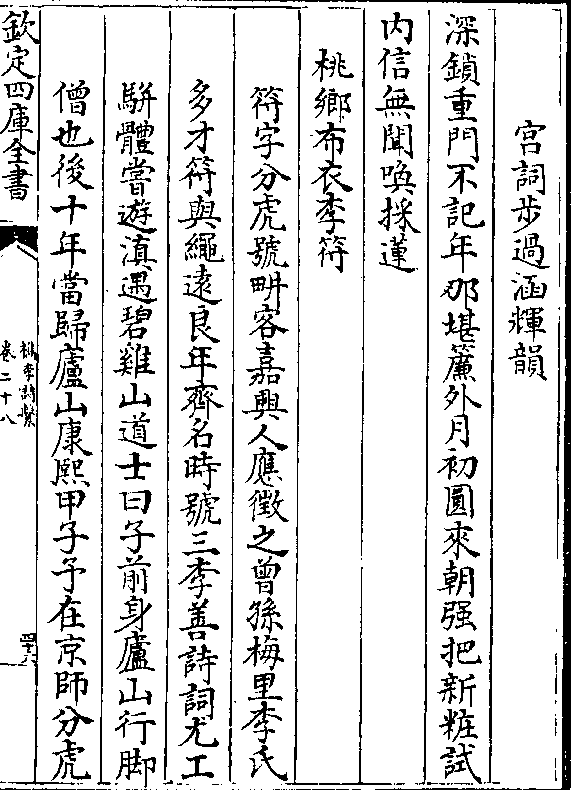 宫詞步過涵輝韻
深鎖重門不記年那堪簾外月初圓來朝强把新粧試
内信無聞喚採蓮
桃鄉布衣李符
符字分虎號畊客嘉興人應徵之曾孫梅里李氏
多才符與繩逺良年齊名時號三李善詩詞尤工
駢體嘗遊滇遇碧雞山道士曰子前身廬山行脚
僧也後十年當歸廬山康熙甲子予在京師分虎
欽定四庫全書
檇李詩繫
卷二十八
四六